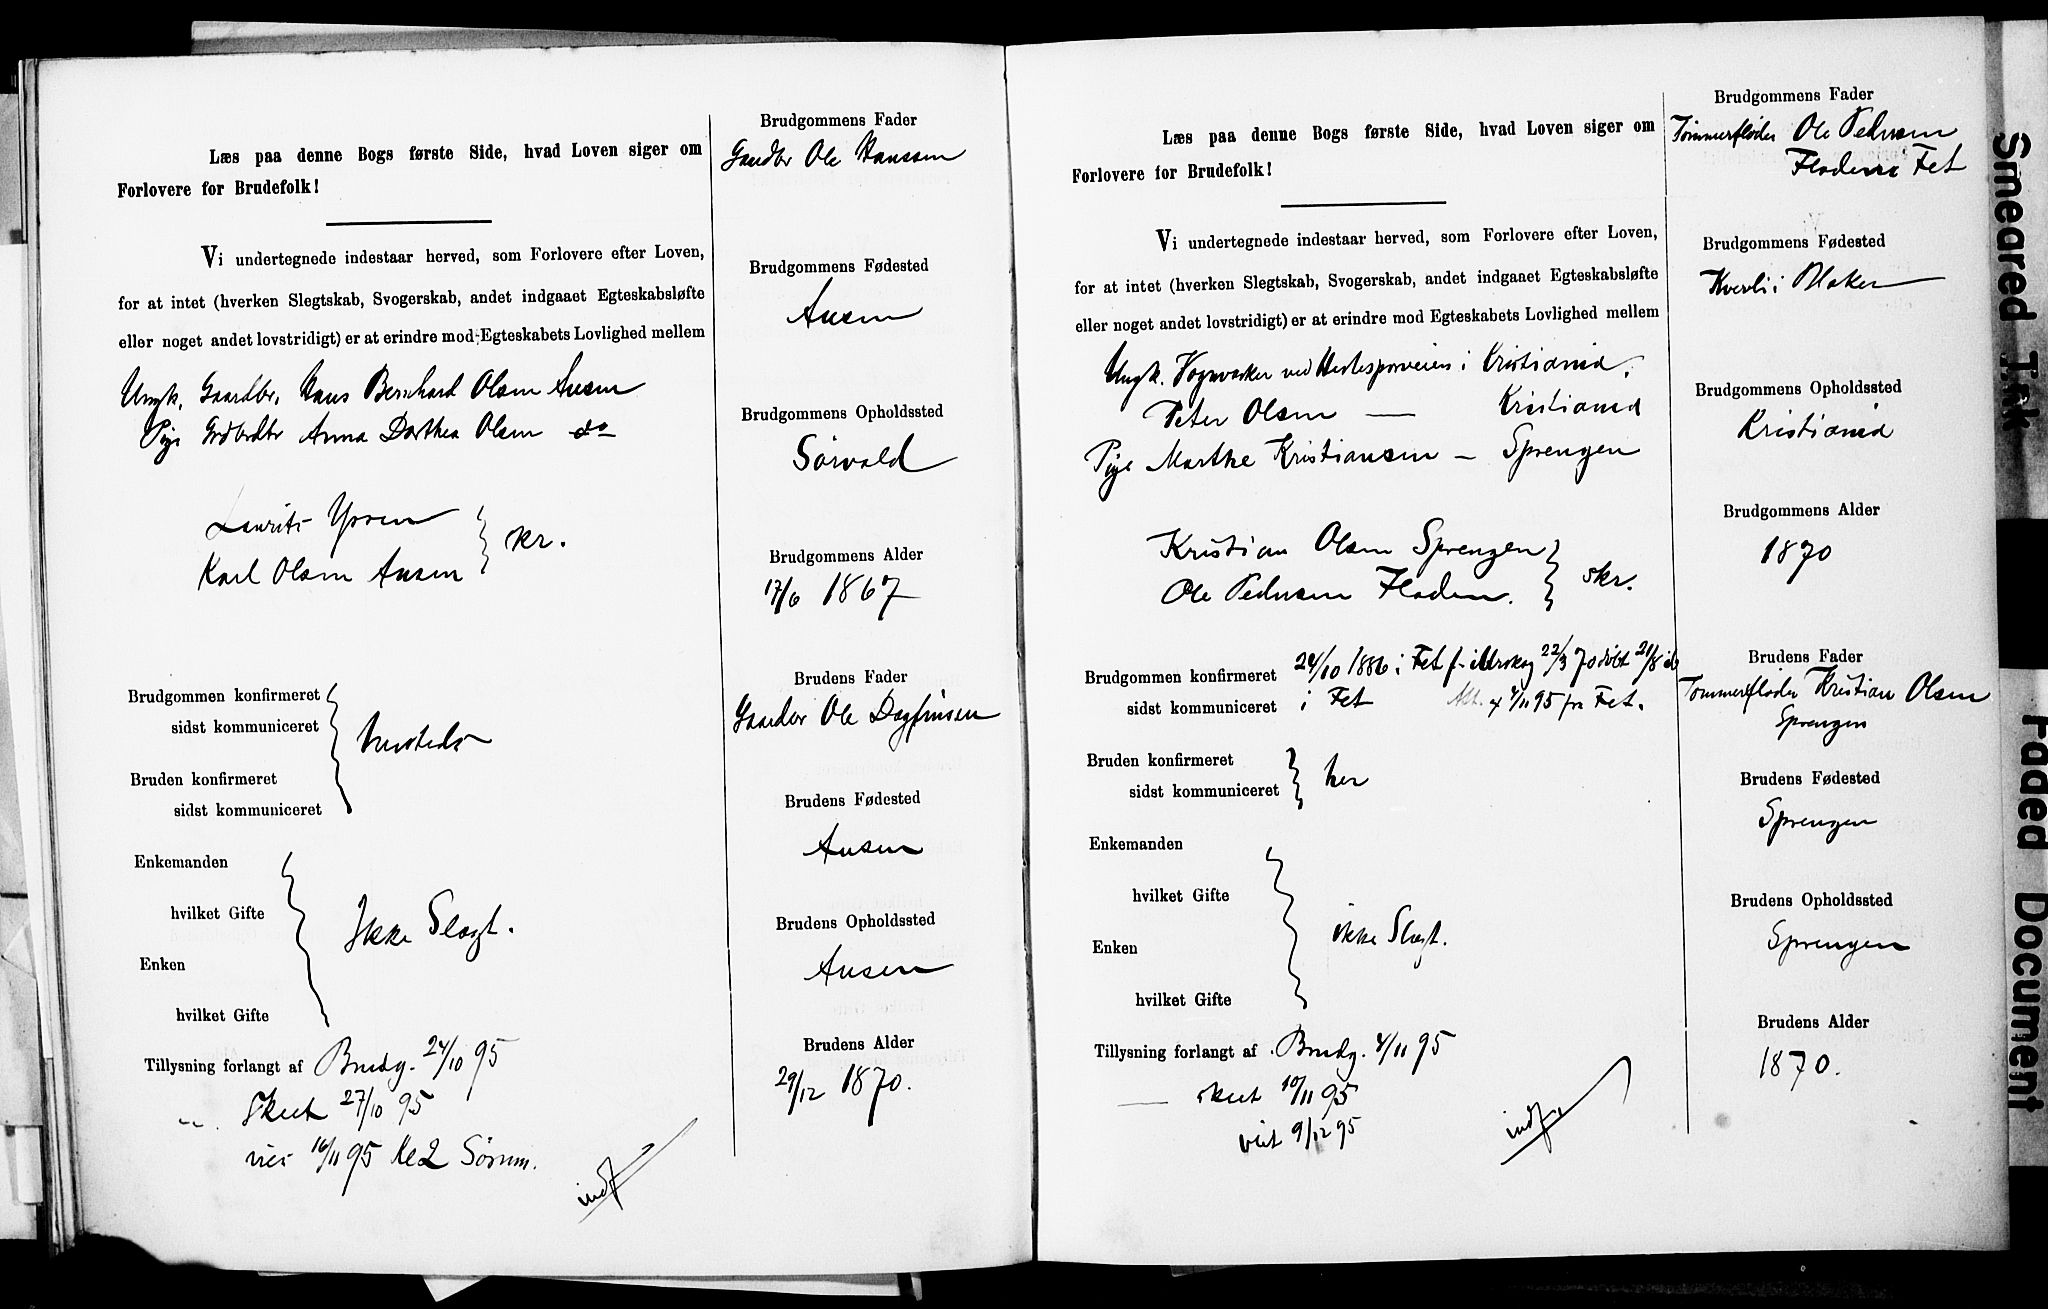 Læs paa denne Bogs første Side, hvad Loven siger om
Forlovere for Brudefolk!
Vi undertegnede indestaar herved, som Forlovere efter Loven,
for at intet (hverken Slegtskab, Svogerskab, andet indgaaet Egteskabsløfte
eller noget andet lovstridigt) er at erindre mod Egteskabets Lovlighed mellem
Ungk. Gaardbr. Hans Bernhard Olsen Ausen
Pige Anna Dorthea Olsen do
Laurits
Karl Olsen Ausen } skr.
Brudgommen konfirmeret
sidst kommuniceret
Bruden konfirmeret
sidst kommuniceret
Enkemanden
hvilket Gifte
Ikke Slægt.
Enken
hvilket Gifte
Tillysning forlangt af Brudg. 24/10 95
" skeet 27/10 95
viet 16/11 95 Sørum.
indf
Brudgommens Fader
Gaardbr Ole Hanssen
Brudgommens Fødested
Ausen
Brudgommens Opholdssted
Sørvald
Brudgommens Alder
17/6 1867
Brudens Fader
Gaardbr Ole Dagfinsen
Brudens Fødested
Ausen
Brudens Opholdssted
Ausen
Brudens Alder
29/12 1870.
Læs paa denne Bogs første Side, hvad Loven siger om
Forlovere for Brudefolk!
Vi undertegnede indestaar herved, som Forlovere efter Loven,
for at intet (hverken Slegtskab, Svogerskab, andet indgaaet Egteskabsløfte
eller noget andet lovstridigt) er at erindre mod Egteskabets Lovlighed mellem
Ungk. Vognvasker ved Hestesporveien i Kristiania,
Peter Olsen — Kristiania
Pige Marthe Kristiansen – Sprengen
Kristian Olsen Sprengen
Ole Pedersen Floden. } skr.
Brudgommen konfirmeret 24/10 1886 i Fet f. 22/3 70 døbt 21/8
sidst kommuniceret i Fet Att. 4/11 95 fra Fet.
Bruden konfirmeret
sidst kommuniceret } her
Enkemanden
hvilket Gifte
ikke Slægt.
Enken
hvilket Gifte
Tillysning forlangt af Brudg. 4/11 95
— skeet 10/11 95
viet 9/12 95
indf.
Brudgommens Fader
Tømmerfløder Ole Pedersen
Floden Fet
Brudgommens Fødested
Kverli i Blaker
Brudgommens Opholdssted
Kristiania
Brudgommens Alder
1870
Brudens Fader
Tømmerfløder Kristian Olsen
Sprengen
Brudens Fødested
Sprengen
Brudens Opholdssted
Sprengen
Brudens Alder
1870.
Smeared Ink
Faded Document